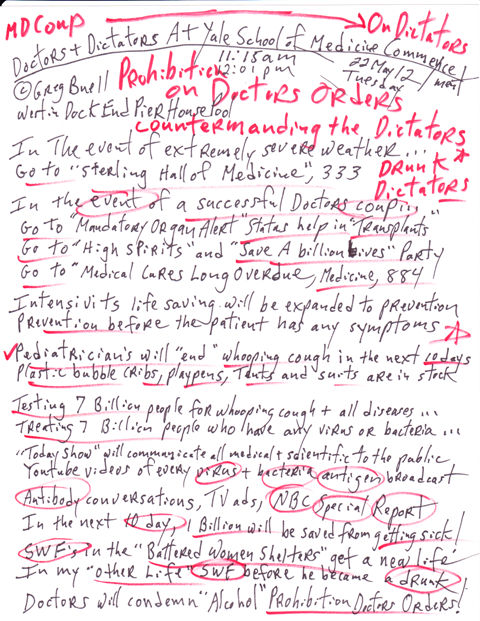 MD Coup → On Dictators
Doctors + Dictators At Yale School of Medicine Commencement
11:15am
22 May 12
© Greg Buell Prohibition 2:01pm Tuesday
on Doctors Orders
West in Dock End Pier House Pool
countermanding the Dictators
In The event of extremely severe weather...
Go to "Sterling Hall of Medicine", 333 DRUNK
Dictators
In the event of a successful Doctors coup...
Go to "Mandatory Organ Alert" Status help in "Transplants
Go to "High spirits" and "Save A billion Lives" Party
Go to "Medical Cures Long Overdue, Medicine, 884
Intensivits life saving will be expanded to prevention
Prevention before the patient has any symptoms
✓Pediatrician's will "end" whooping cough in the next 10 days
Plastic bubble cribs, playpens, Tents and suits are in stock
Testing 7 Billion people for whooping cough + all diseases...
Treating 7 Billion people who have any virus or bacteria...
"Today Show" will communicate all medical + scientific to the public
Youtube videos of every virus + bacteria antigen broadcast
Antibody conversations, TV ads, NBC Special Report
In the next 10 day, 1 Billion will be saved from getting sick!
SWF's in the "Battered Women Shelters" get a new life
In my "other Life" SWF before he became a drunk!
Doctors will condemn "Alcohol" Prohibition Doctors Orders!